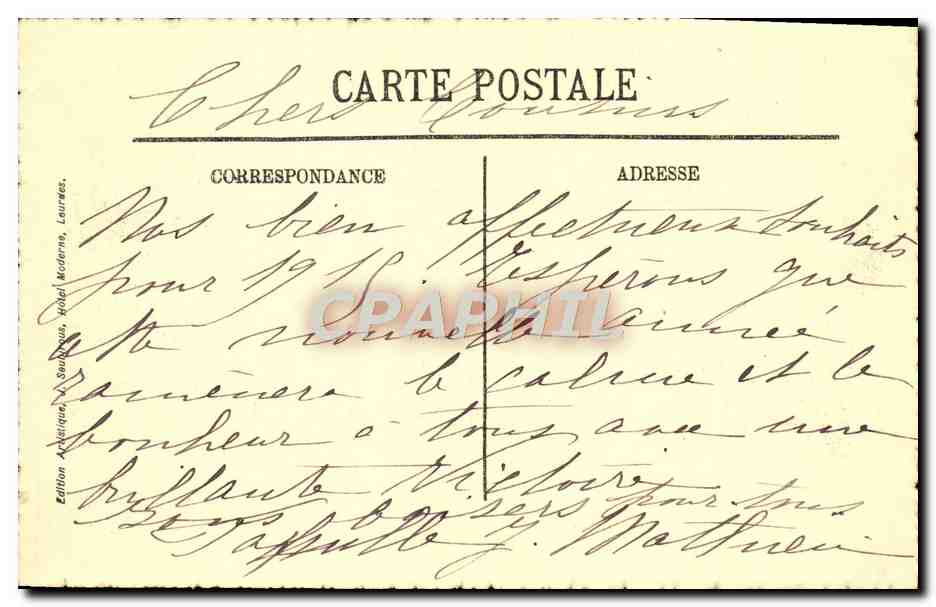 CARTE POSTALE
Chers Cousins
CORRESPONDANCE
ADRESSE
Nos bien affectueux souhaits
pour 1915. Espérons que
cette nouvelle année
ramènera le calme et le
bonheur à tous avec une
brillante Victoire
Bons baisers pour tous
J. Mathieu
Edition Artistique, Soubirous, Hôtel Moderne, Lourdes.
CPAPHIL